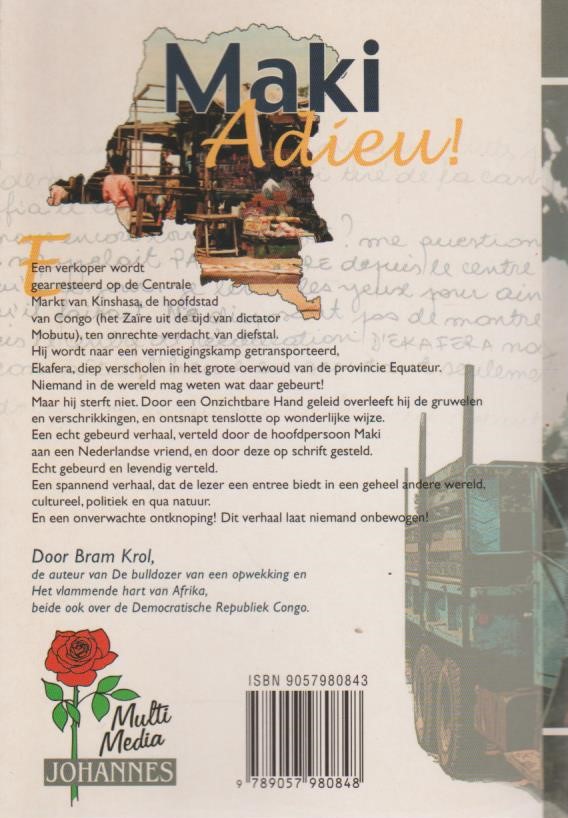 Maki
Adieu!
Een verkoper wordt
gearresteerd op de Centrale
Markt van Kinshasa, de hoofdstad
van Congo (het Zaïre uit de tijd van dictator
Mobutu), ten onrechte verdacht van diefstal.
Hij wordt naar een vernietigingskamp getransporteerd,
Ekafera, diep verscholen in het grote oerwoud van de provincie Equateur.
Niemand in de wereld mag weten wat daar gebeurt!
Maar hij sterft niet. Door een Onzichtbare Hand geleid overleeft hij de gruwelen
en verschrikkingen, en ontsnapt tenslotte op wonderlijke wijze.
Een echt gebeurd verhaal, verteld door de hoofdpersoon Maki
aan een Nederlandse vriend, en door deze op schrift gesteld.
Echt gebeurd en levendig verteld.
Een spannend verhaal, dat de lezer een entree biedt in een geheel andere wereld,
cultureel, politiek en qua natuur.
En een onverwachte ontknoping! Dit verhaal laat niemand onbewogen!
Door Bram Krol,
de auteur van De bulldozer van een opwekking en
Het vlammende hart van Afrika,
beide ook over de Democratische Republiek Congo.
Multi
Media
JOHANNES
ISBN 9057980843
9 789057 980848
me question
depuis le centre
les yeux pour ain
pas de montre
D'EKAFERA